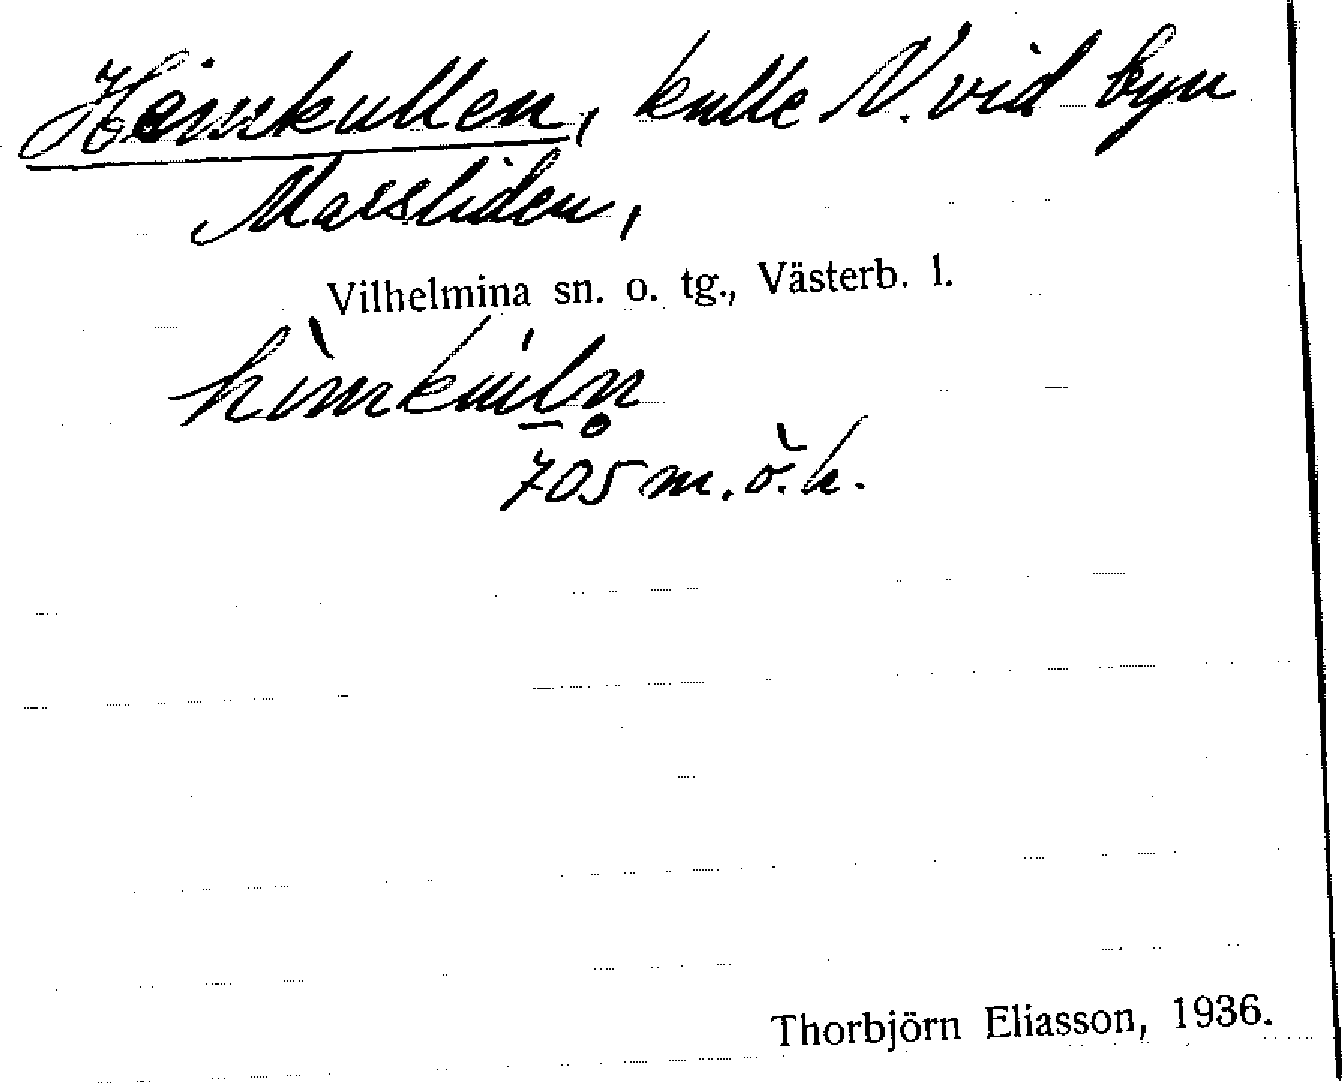 Heimkullen, kulle N. vid byn
Marsliden,
Vilhelmina sn. o. tg., Västerb. l.
705 m. ö. h.
Thorbjörn Eliasson, 1936.